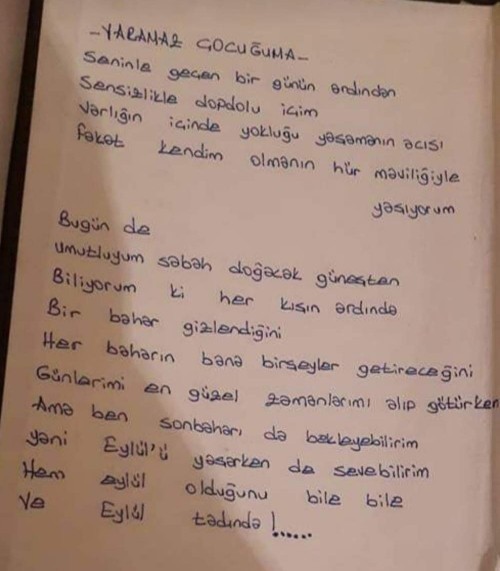 -YARAMAZ ÇOCUĞUMA-
Seninle geçen bir günün ardından
Sensizlikle dopdolu içim
Varlığın içinde yokluğu yaşamanın acısı
Fakat kendim olmanın hür maviliğiyle
yaşıyorum
Bugün de
umutluyum sabah doğacak güneşten
Biliyorum ki her kışın ardında
Bir bahar gizlendiğini
Her baharın bana birşeyler getireceğini
Günlerimi en güzel zamanlarımı alıp götürken
Ama ben sonbaharı da bekleyebilirim
yani Eylül'ü yaşarken de sevebilirim
Hem eylül olduğunu bile bile
Ve Eylül tadında!......